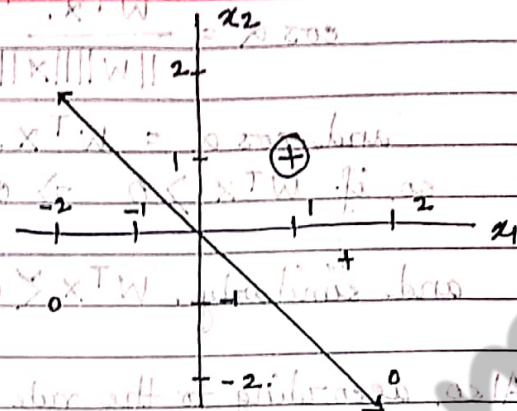 x2
2
1
+
-2 -1 1 2 x1
+
0 -1
-2
0